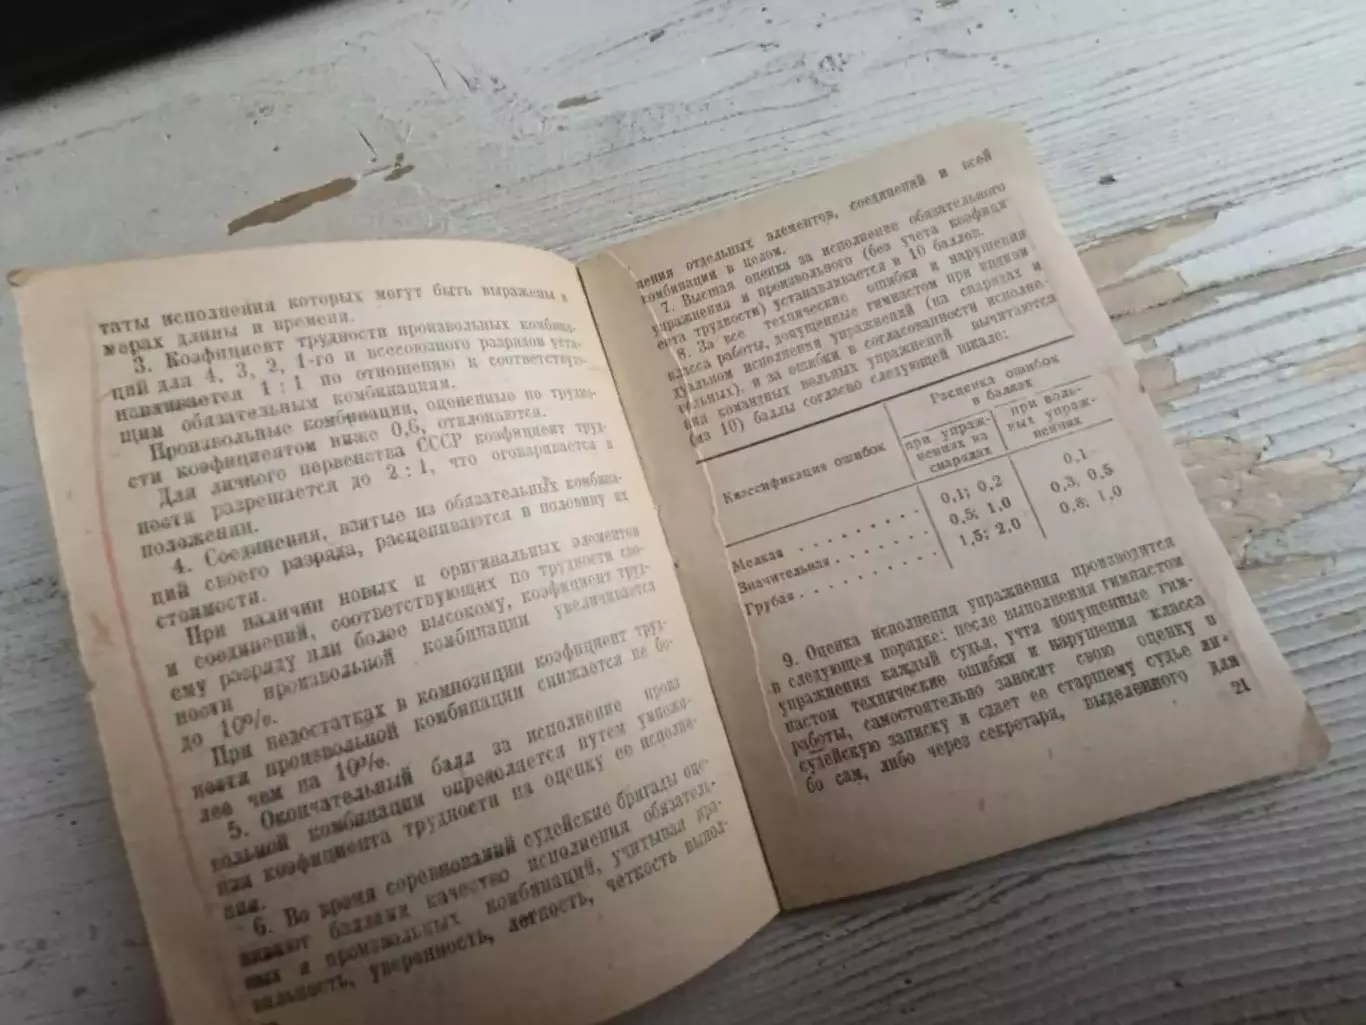 таты исполнения которых могут быть выражены в
мерах длины и времени.
3. Коэфициент трудности произвольных комбина-
ций для 4, 3, 2, 1-го и всесоюзного разрядов уста-
навливается 1 : 1 по отношению к соответствую-
щим обязательным комбинациям.
Произвольные комбинации, оцененные по трудно-
сти коэфициентом ниже 0,6, отклоняются.
Для личного первенства СССР коэфициент труд-
ности разрешается до 2 : 1, что оговаривается в
положении.
4. Соединения, взятые из обязательных комбина-
ций своего разряда, расцениваются в половину их
стоимости.
При наличии новых и оригинальных элементов
и соединений, соответствующих по трудности сво-
ему разряду или более высокому, коэфициент труд-
ности произвольной комбинации увеличивается
до 10%.
При недостатках в композиции коэфициент труд-
ности произвольной комбинации снижается не бо-
лее чем на 10%.
5. Окончательный балл за исполнение произ
вольной комбинации определяется путем умноже-
ния коэфициента трудности на оценку ее исполне-
ния.
6. Во время соревнований судейские бригады оце-
нивают баллами качество исполнения обязатель-
ных и произвольных комбинаций, учитывая пра-
вильность, уверенность, легкость, четкость выпол-
нения отдельных элементов, соединений и всей
комбинации в целом.
7. Высшая оценка за исполнение обязательного
упражнения и произвольного (без учета коэфици-
ента трудности) устанавливается в 10 баллов.
8. За все технические ошибки и нарушения
класса работы, допущенные гимнастом при индиви
дуальном исполнении упражнений (на снарядах и
вольных), и за ошибки в согласованности исполне-
ния командных вольных упражнений вычитаются
(из 10) баллы согласно следующей шкале:
Классификация ошибок
Расценка ошибок
в баллах
при упраж-
нениях на
снарядах
при воль-
ных упраж-
нениях
Мелкая . . . . . . 0,1; 0,2 0,1
Значительная . . . . . 0,5; 1,0 0,3, 0,5
Грубая . . . . . . . 1,5; 2,0 0,8; 1,0
9. Оценка исполнения упражнения производится
в следующем порядке: после выполнения гимнастом
упражнения каждый судья, учтя допущенные гим-
настом технические ошибки и нарушения класса
работы, самостоятельно заносит свою оценку в
судейскую записку и сдает ее старшему судье ли-
бо сам, либо через секретаря, выделенного для
21